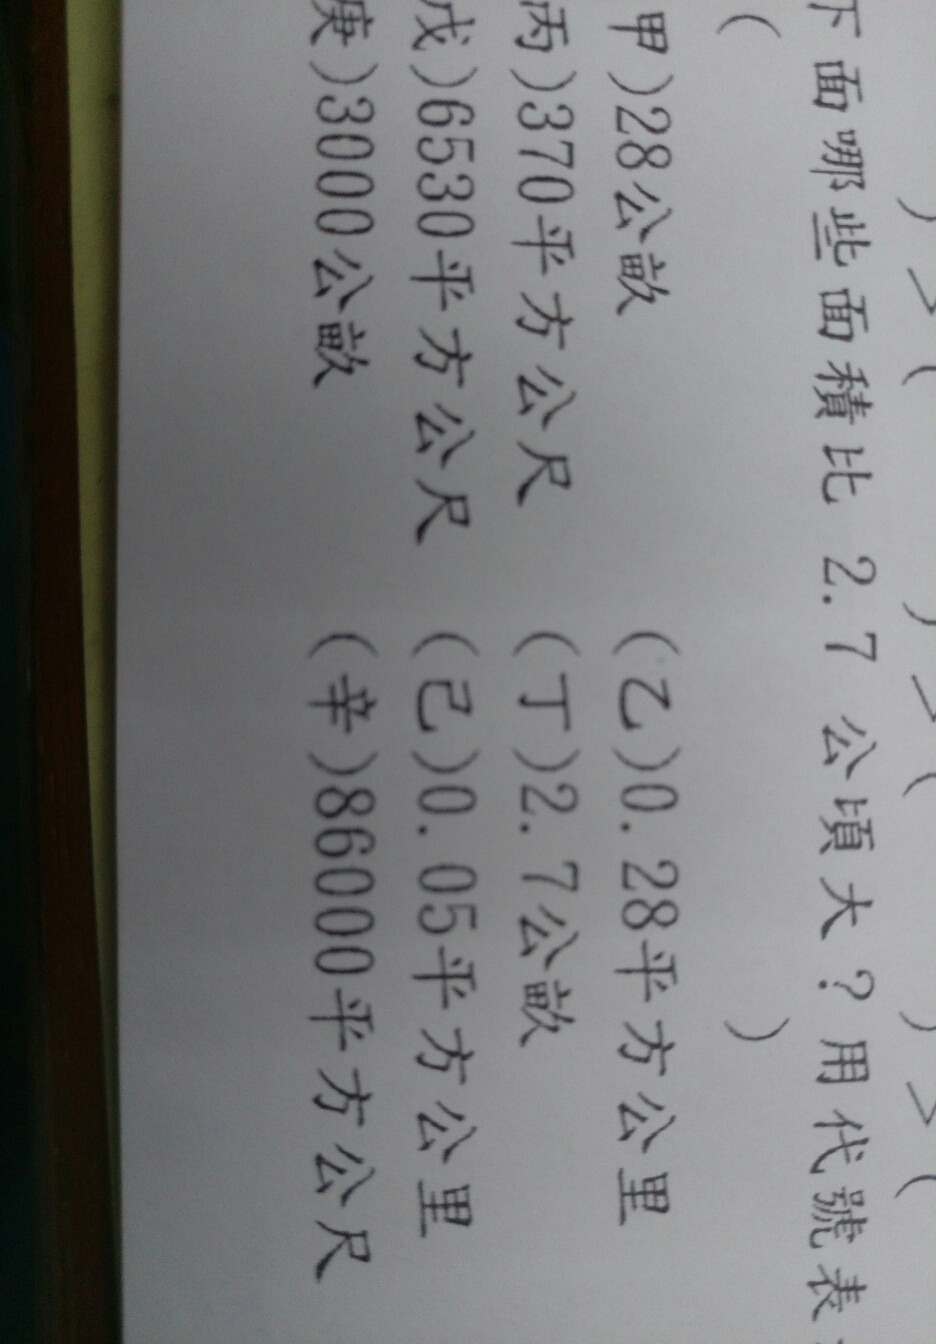 ) > (          ) > (          ) > (
下面哪些面積比 2.7 公頃大？用代號表
(          )
甲)28公畝 (乙)0.28平方公里
丙)370平方公尺 (丁)2.7公畝
戊)6530平方公尺 (己)0.05平方公里
庚)3000公畝 (辛)86000平方公尺